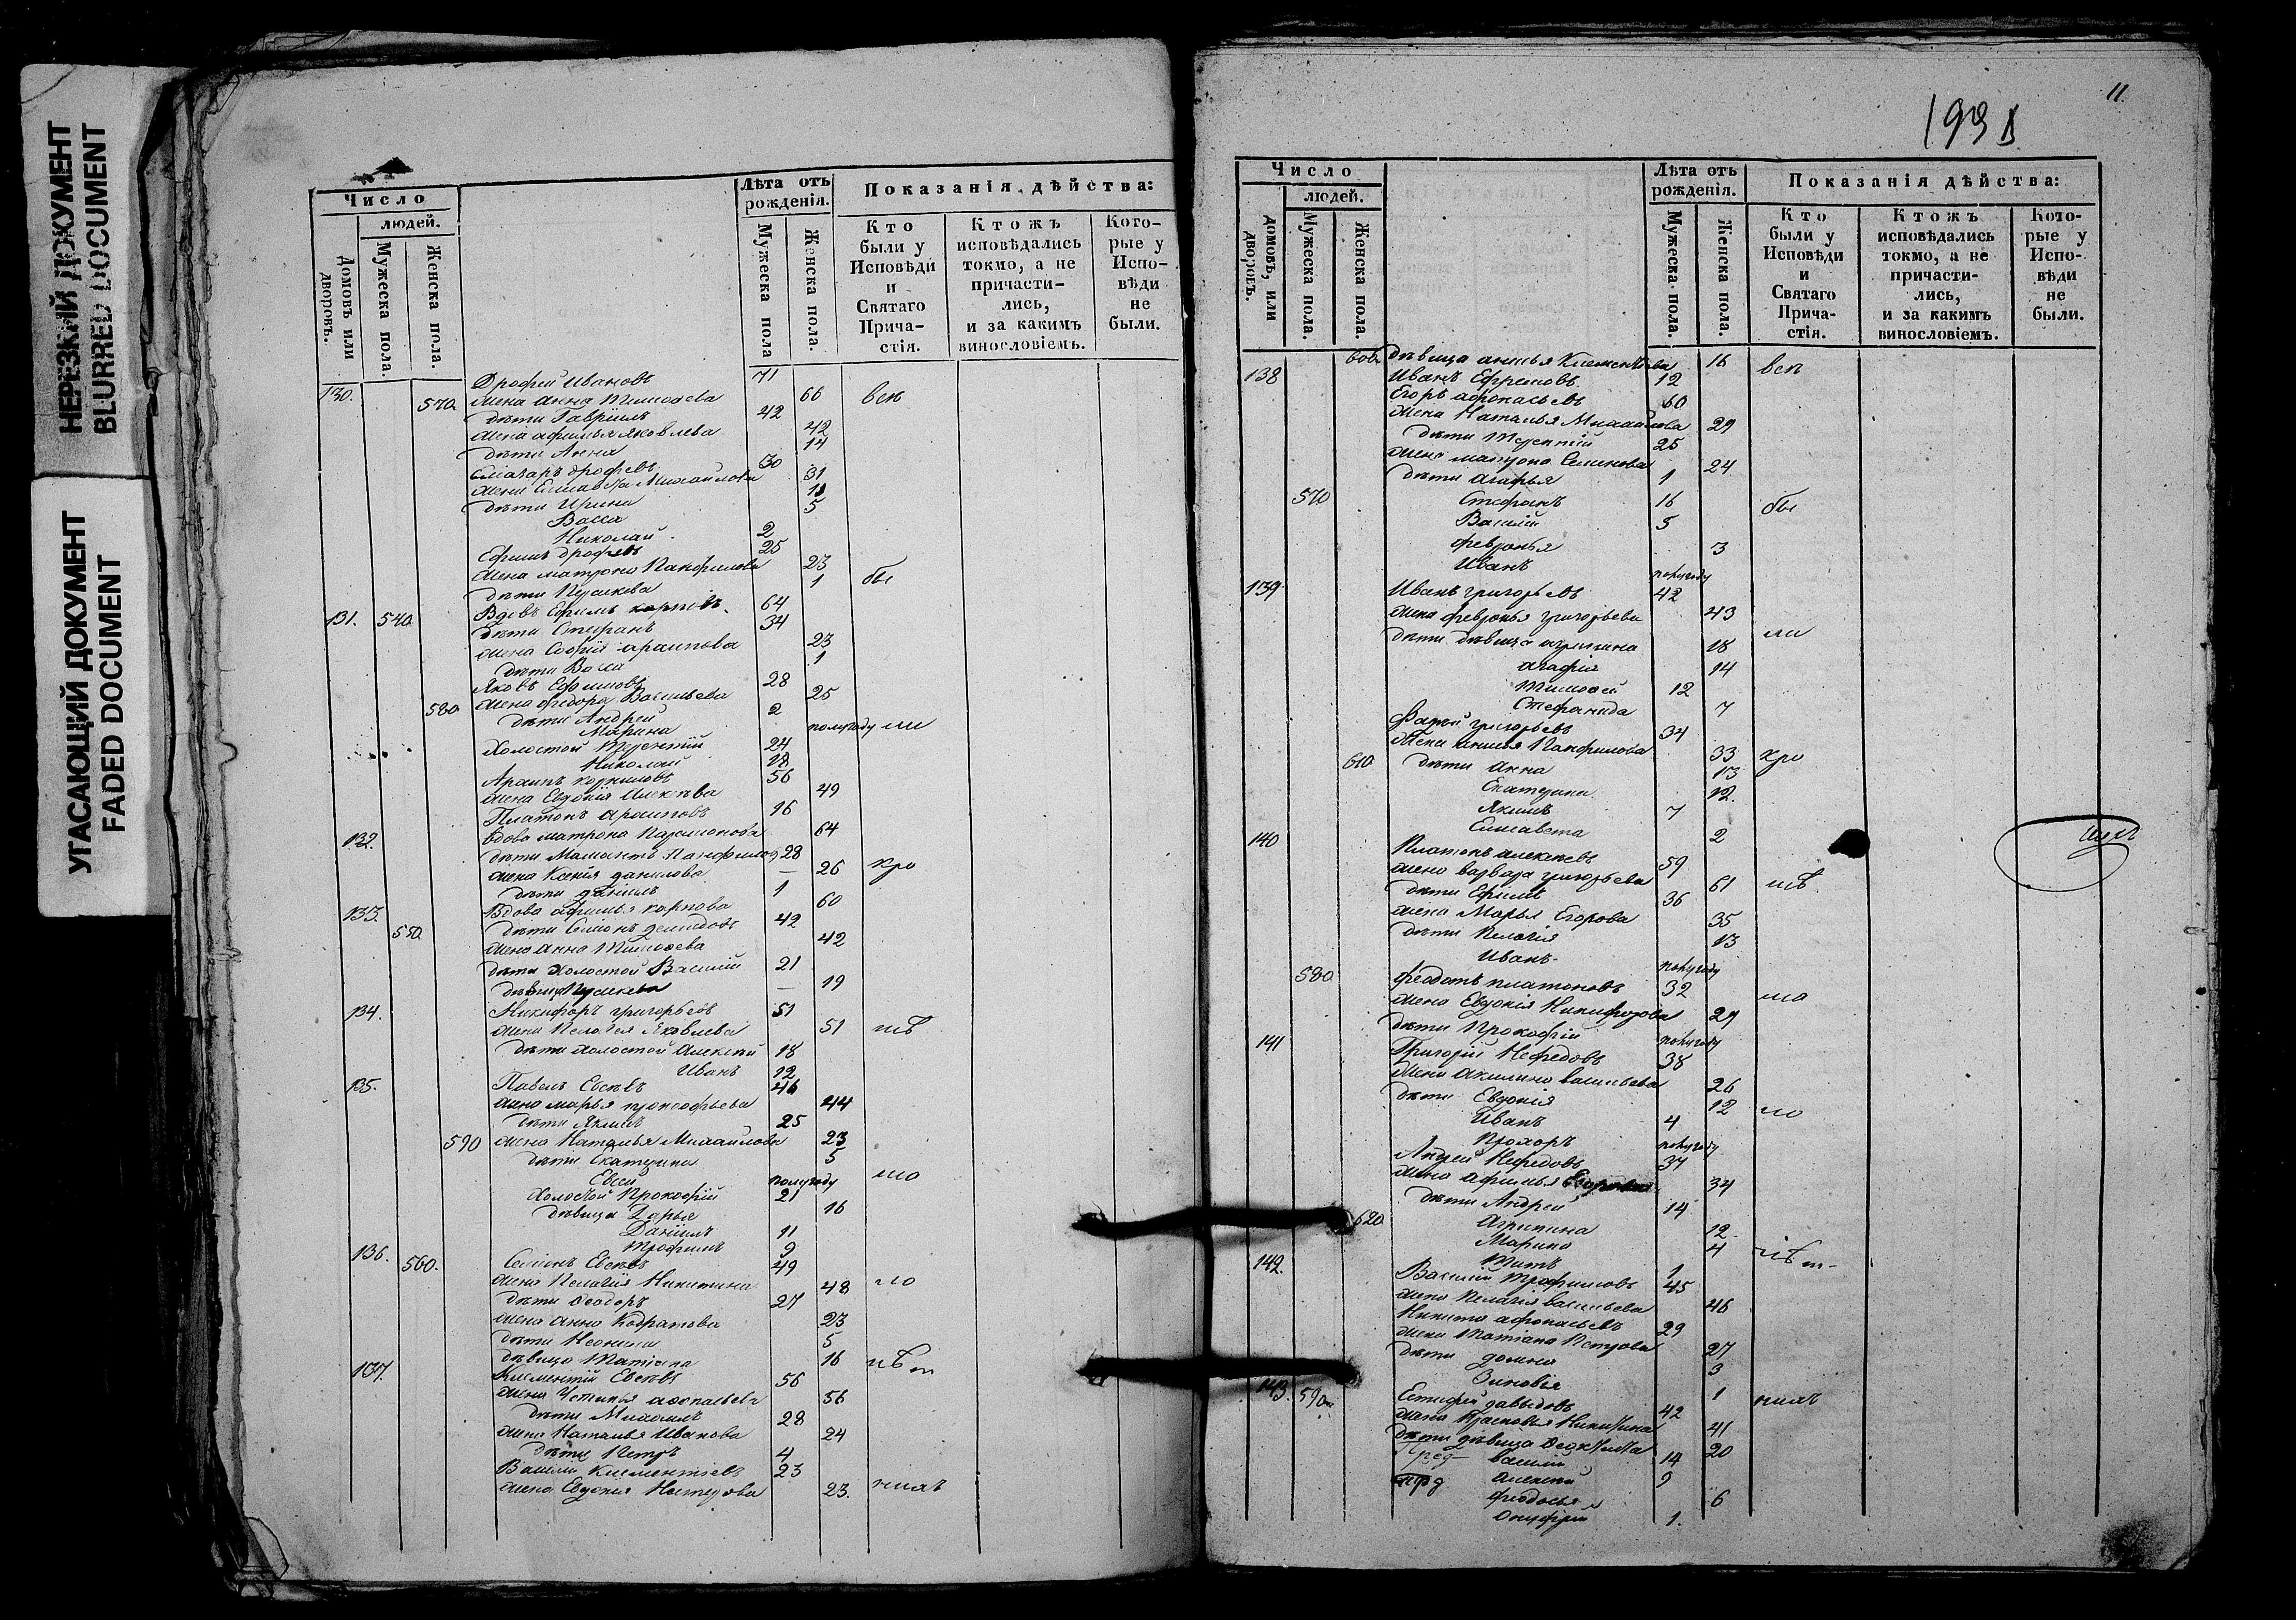 НЕРЕЗКИЙ ДОКУМЕНТ
BLURRED DOCUMENT
УГАСАЮЩИЙ ДОКУМЕНТ
FADED DOCUMENT
Число
людей.
Домовъ или дворовъ.
Мужеска пола.
Женска пола.
Лѣта отъ рожденія.
Мужеска пола
Женска пола.
Показанія дѣйства:
Кто были у Исповѣди и Святаго Прича-стія.
Ктожъ исповѣдались токмо, а не причасти-лись, и за какимъ винословіемъ.
Кото-рые у Испо-вѣди не были.
130. Дрофей Ивановъ 71
570. жена Анна Тимоѳеева 66 всѣ
дѣти Гавріилъ 42
жена Афимья Яковлева 42
дѣти Анна 14
дрофеевъ 30
жена Елисавета Михайлова 31
дѣти Ирина 11
Васса 5
Николай 2
Ефимъ дрофеевъ 25
жена матрона Панфилова 23
дѣти 1 бы
131. 540 Вдовъ Ефимъ 64
дѣти Стефанъ 34
жена Софія архипова 23
дѣти Васса 1
Яковъ Ефимовъ 28
580 жена Ѳедора Васильева 25
дѣти Андрей 2
Марина полугоду ли
Холостой Терентій 24
Николай 18
Архипъ корниловъ 56
жена Евдокія Алексѣева 49
Платонъ архиповъ 16
132. Вдова матрона 64
дѣти Панфиловъ 28
жена Ксенія данилова — 26 хро
дѣти даніилъ 1
133. Вдова афимья карпова 60
550. дѣти Симіонъ демидовъ 42
жена анна Тимоѳеева 42
дѣти холостой Василій 21
дѣвица — 19
134. Никифоръ григорьевъ 51
жена Пелагея Яковлева 51 ств
дѣти холостой Алексѣй 18
Иванъ 12
135. Павелъ Евсѣевъ 46
жена марья прокофьева 44
дѣти Якимъ 25
590 жена Наталья Михайлова 23
дѣти Екатерина 5
Евсей полугоду
Холостой Прокофій 21
дѣвица Дарья 16
Даніилъ 11
Трофимъ 9
136. 560. Симіонъ Евсѣевъ 49
жена Пелагія Никитина 48 ло
дѣти Ѳеодоръ 27
жена анна Кодратова 23
дѣти 5
дѣвица Татіана 16
137. Климентій Евсѣевъ 56
жена Устинья аѳонасьева 56
дѣти Михаилъ 28
жена Наталья Иванова 24
дѣти Петръ 4
Василій Климентіевъ 23
жена Евдокія Нестерова 23.
11.
Число
людей.
домовъ, или дворовъ.
Мужеска пола.
Женска пола.
Лѣта отъ рожденія.
Мужеска пола.
Женска пола.
Показанія дѣйства:
Кто были у Исповѣди и Святаго Прича-стія.
Ктожъ исповѣдались токмо, а не причасти-лись, и за какимъ винословіемъ.
Кото-рые у Испо-вѣди не были.
600. дѣвица анисья Климентьева 16 всѣ
138 Иванъ Ефремовъ 12
Егоръ афонасьевъ 60
жена Наталья Михайлова 29
дѣти Терентій 25
жена матрона Семенова 24
дѣти агафья 1
570 Стефанъ 16 бы
Василій 5
февронья 3
Иванъ полугоду
139 Иванъ григорьевъ 42
жена февронья григорьева 43
дѣти дѣвица акулина 18 ли
агафія 14
Тимоѳей 12
Стефанида 7
григорьевъ 34
жена Панфилова 33 хро
610. дѣти Анна 13
Екатерина 12.
Якимъ 7
Елисавета 2
140 Платонъ алексѣевъ 59
жена варвара григорьева 61 ств.
дѣти Ефимъ 36
жена Марья Егорова 35
дѣти Пелагія 13
Иванъ полугоду
580 феодотъ платоновъ 32
жена Евдокія Никифорова 29
дѣти Прокофій полугоду
141 Григорій Нефедовъ 38
жена акилина васильева 26
дѣти Евдокія 12 ло
Иванъ 4
Прохоръ полугоду
Андрей Нефедовъ 37
жена афимья 34
дѣти Андрей 14
620 Агрипина 12.
Марина 4
Титъ 1
142. Василій Трофимовъ 45
жена Пелагія васильева 46
Никита афонасьевъ 29
жена Татіана Петрова 27
дѣти домна 3
Зиновія 1
143. 590 Евтифій давыдовъ 42
жена Прасковья Никитина 41
дѣти дѣвица 20
Василій 14
алексѣй 9
феодосья 6
Онуфрій 1.